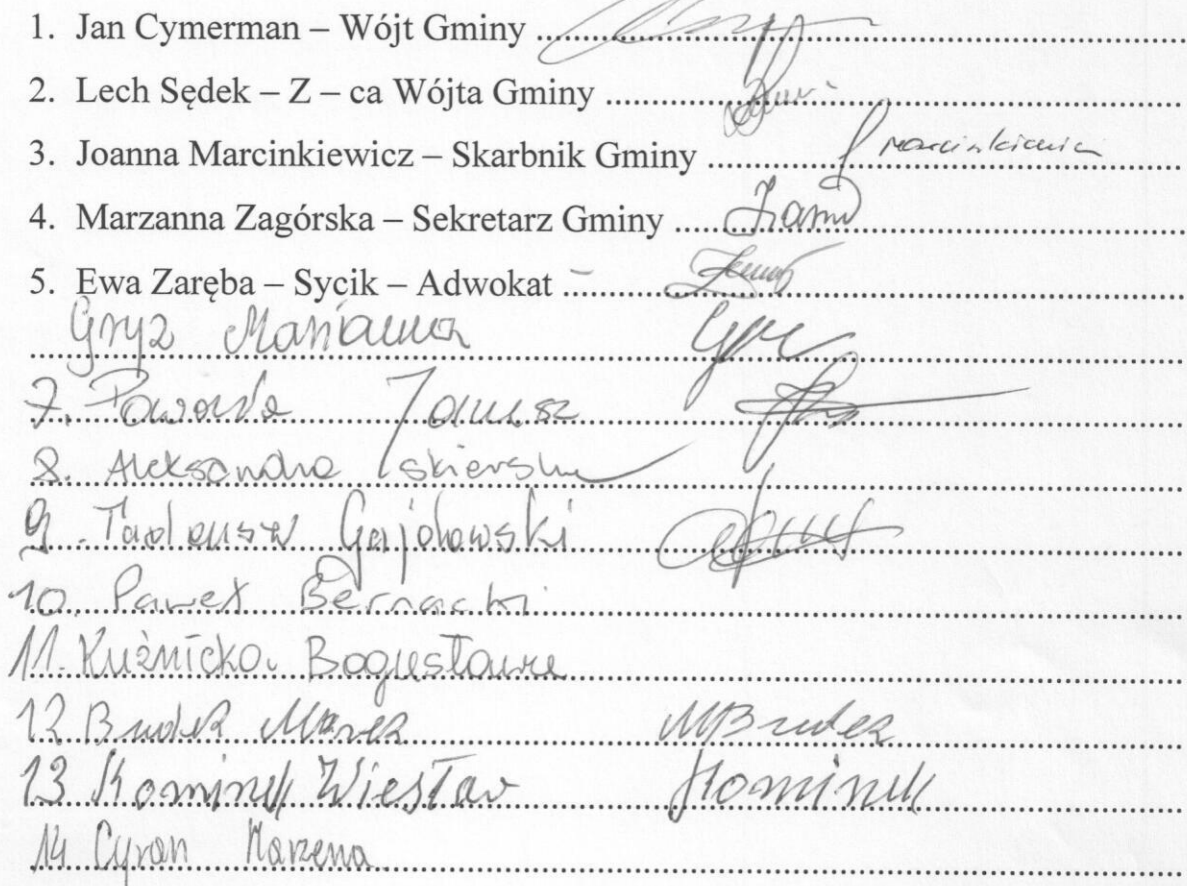 1. Jan Cymerman – Wójt Gminy
2. Lech Sędek – Z – ca Wójta Gminy
3. Joanna Marcinkiewicz – Skarbnik Gminy Marcinkiewicz
4. Marzanna Zagórska – Sekretarz Gminy
5. Ewa Zaręba – Sycik – Adwokat
Gryz Marianna
7. Janusz
8. Aleksandra
9. Tadeusz Gajdowski
10. Paweł Bernacki
11. Kuźnicka Bogusława
12 Brudek Marek MBrudek
13 Kominek Wiesław Kominek
14 Cyran Marzena